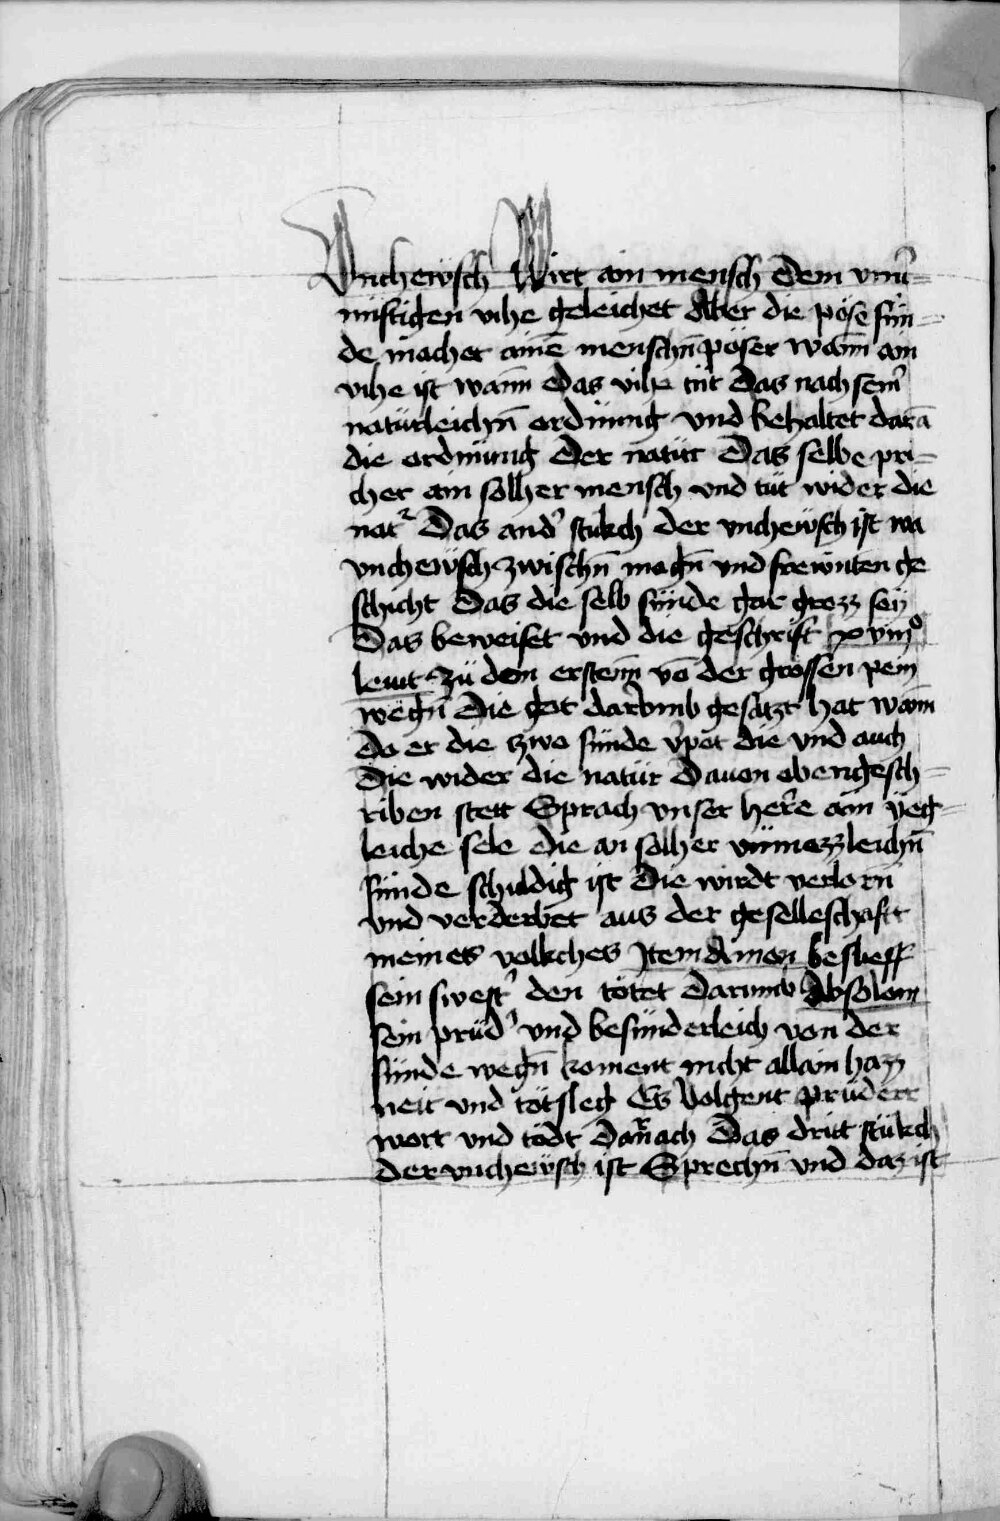 Vnchewsch Wirt ain mensch dem vnu̍=
nüfftigen vihe geleichet Aber die pöse sün=
de machet ainē menschn̄ pöser wann ain
vihe ist wann das vihe tüt das nach sem̍
natürleichn̄ ordnung vnd behaltet darā
die ordnüng der natür Das selbe pri=
chet ain solher mensch vnd tüt wider die
nat̍ Das and̍ stükch der vnchewsch ist wa
vnchewsch zwischn̄ magn̄ vnd frewnten ge
schicht Das die selb sünde gar grozz seÿ
Das beweiset vnd die geschrift xviijº
leuit zü dem ersten vō der grossen pein
wegn̄ Die got darvmb gesatzt hat wann
Do er die zwo sünde v̍pot die vnd auch
die wider die natür dauon obengesch=
riben stett Sprach vnser her̄e ain ÿeg=
leiche sele die an solher vnmezzleichn̄
sünde schuldig ist Die wirdt verlorn
vnd verderbet aus der geselleschafft
meines volkches Item Amon beslieff
sein swest̍ den tötet darumb Absolom
sein prüd̍ vnd besünderleich von der
sünde wegn̄ koment nicht allain hazz
neit vnd tötsleg Es volgent prüderr
wort vnd tödt darnach Das dritt stükch
der vnchewsch ist Sprechn̄ vnd daz ist